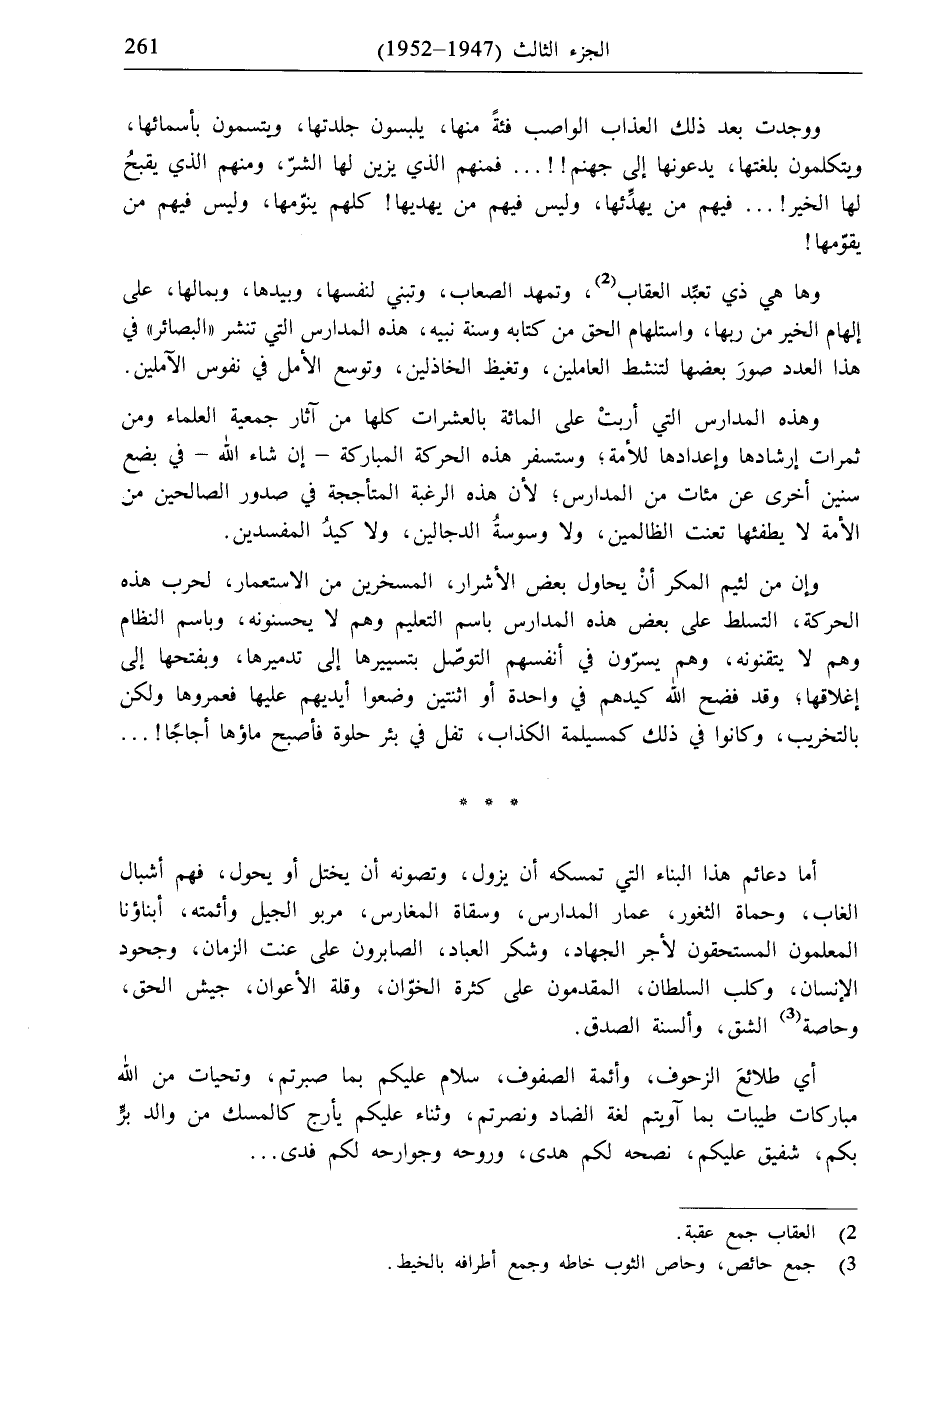 الجزء الثالث (1947–1952) 261
ووجدت بعد ذلك العذاب الواصب فئةً منها، يلبسون جلدتها، ويتسمون بأسمائها،
ويتكلمون بلغتها، يدعونها إلى جهنم!!... فمنهم الذي يزين لها الشرّ، ومنهم الذي يقبحُ
لها الخير!... فيهم من يهدِّئها، وليس فيهم من يهديها! كلهم ينوّمها، وليس فيهم من
يقوّمها!
وها هي ذي تعبِّد العقاب(2)، وتمهد الصعاب، وتبني لنفسها، وبيدها، وبمالها، على
إلهام الخير من ربها، واستلهام الحق من كتابه وسنة نبيه، هذه المدارس التي تنشر «البصائر» في
هذا العدد صورَ بعضها لتنشط العاملين، وتغيظ الخاذلين، وتوسع الأمل في نفوس الآملين.
وهذه المدارس التي أربتْ على المائة بالعشرات كلها من آثار جمعية العلماء ومن
ثمرات إرشادها وإعدادها للأمة؛ وستسفر هذه الحركة المباركة – إن شاء الله – في بضع
سنين أخرى عن مئات من المدارس؛ لأن هذه الرغبة المتأججة في صدور الصالحين من
الأمة لا يطفئها تعنت الظالمين، ولا وسوسةُ الدجالين، ولا كيدُ المفسدين.
وإن من لئيم المكر أنْ يحاول بعض الأشرار، المسخرين من الاستعمار، لحرب هذه
الحركة، التسلط على بعض هذه المدارس باسم التعليم وهم لا يحسنونه، وباسم النظام
وهم لا يتقنونه، وهم يسرّون في أنفسهم التوصّل بتسييرها إلى تدميرها، وبفتحها إلى
إغلاقها؛ وقد فضح الله كيدهم في واحدة أو اثنتين وضعوا أيديهم عليها فعمروها ولكن
بالتخريب، وكانوا في ذلك كمسيلمة الكذاب، تفل في بئر حلوة فأصبح ماؤها أجاجًا!...
* * *
أما دعائم هذا البناء التي تمسكه أن يزول، وتصونه أن يختل أو يحول، فهم أشبال
الغاب، وحماة الثغور، عمار المدارس، وسقاة المغارس، مربو الجيل وأئمته، أبناؤنا
المعلمون المستحقون لأجر الجهاد، وشكر العباد، الصابرون على عنت الزمان، وجحود
الإنسان، وكلب السلطان، المقدمون على كثرة الخوّان، وقلة الأعوان، جيش الحق،
وحاصة(3) الشق، وألسنة الصدق.
أي طلائعَ الزحوف، وأئمة الصفوف، سلام عليكم بما صبرتم، وتحيات من الله
مباركات طيبات بما آويتم لغة الضاد ونصرتم، وثناء عليكم يأرج كالمسك من والد برٍّ
بكم، شفيق عليكم، نصحه لكم هدى، وروحه وجوارحه لكم فدى...
2) العقاب جمع عقبة.
3) جمع حائص، وحاص الثوب خاطه وجمع أطرافه بالخيط.